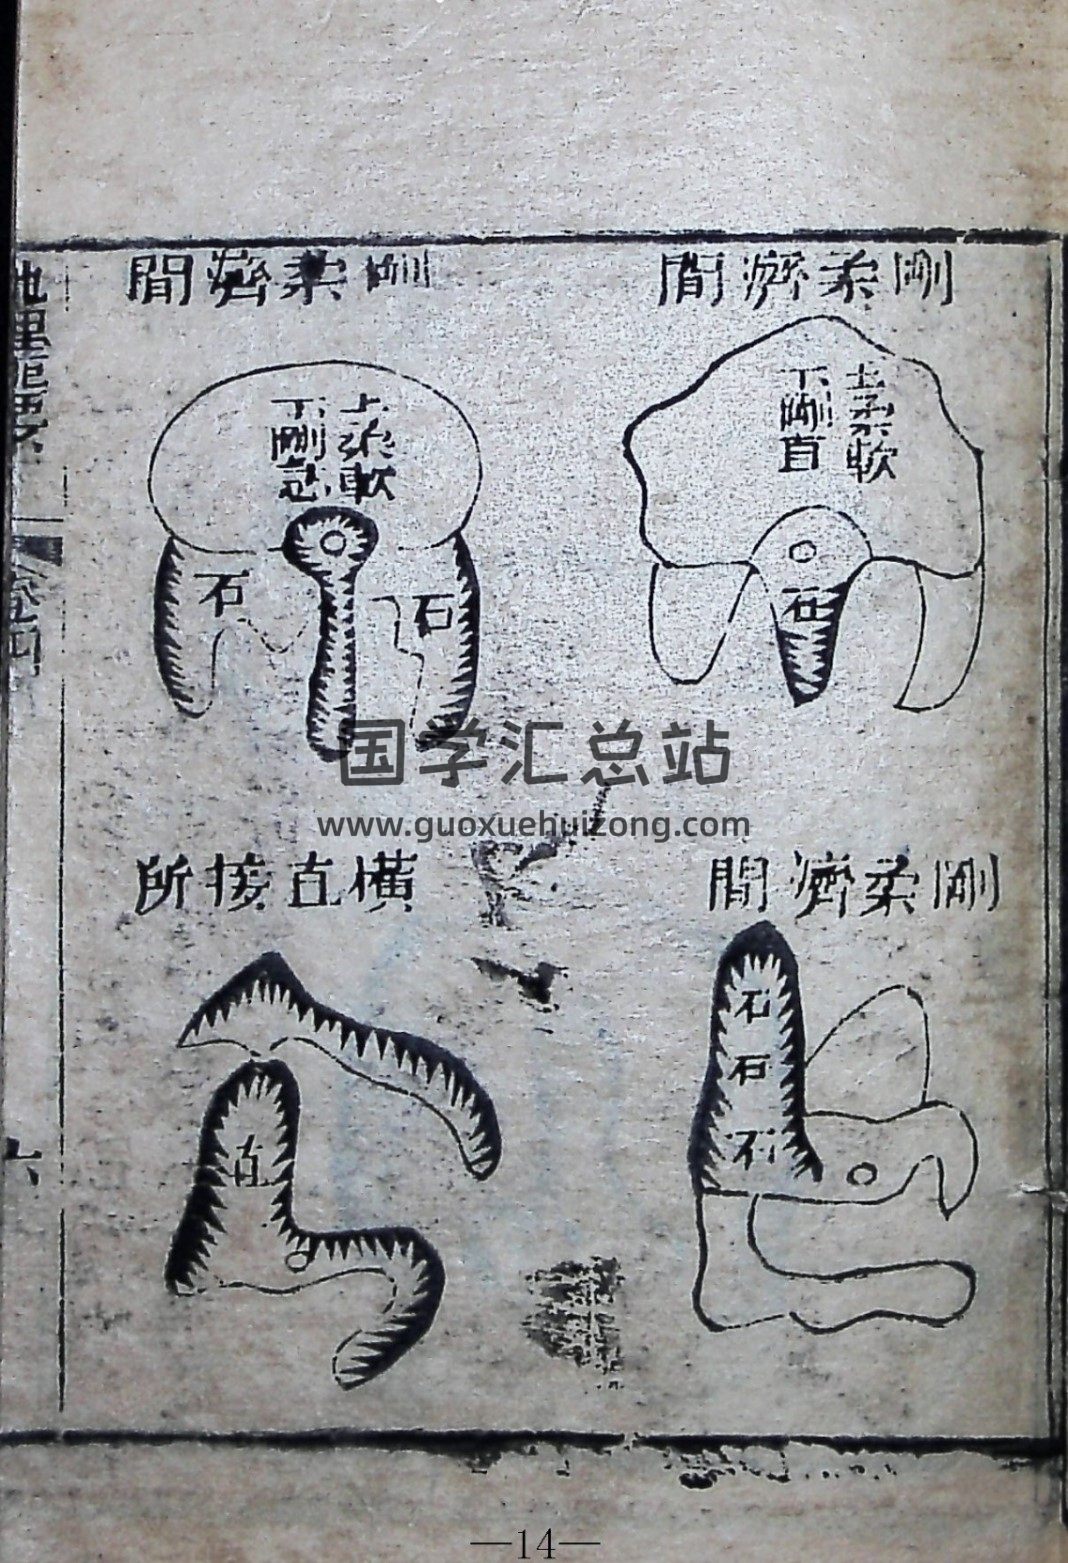 剛柔濟間
上柔軟
下剛直
石
剛柔濟間
上柔軟
下剛急
石
石
剛柔濟間
石石石
橫直接所
直
卷四
六
国学汇总站
www.guoxuehuizong.com
—14—